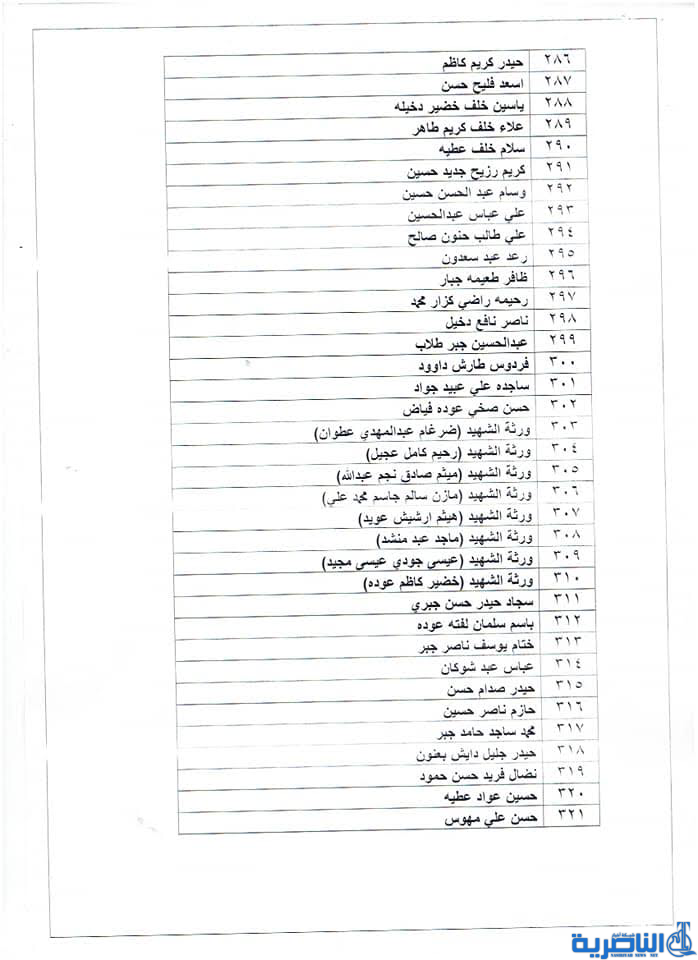 ٢٨٦ حيدر كريم كاظم
٢٨٧ اسعد فليح حسن
٢٨٨ ياسين خلف خضير دخيله
٢٨٩ علاء خلف كريم طاهر
٢٩٠ سلام خلف عطيه
٢٩١ كريم رزيج جديد حسين
٢٩٢ وسام عبد الحسن حسين
٢٩٣ علي عباس عبدالحسين
٢٩٤ علي طالب حنون صالح
٢٩٥ رعد عبد سعدون
٢٩٦ ظافر طعيمه جبار
٢٩٧ رحيمه راضي كزار محمد
٢٩٨ ناصر نافع دخيل
٢٩٩ عبدالحسين جبر طلاب
٣٠٠ فردوس طارش داوود
٣٠١ ساجده علي عبيد جواد
٣٠٢ حسن صخي عوده فياض
٣٠٣ ورثة الشهيد (ضرغام عبدالمهدي عطوان)
٣٠٤ ورثة الشهيد (رحيم كامل عجيل)
٣٠٥ ورثة الشهيد (ميثم صادق نجم عبدالله)
٣٠٦ ورثة الشهيد (مازن سالم جاسم محمد علي)
٣٠٧ ورثة الشهيد (هيثم ارشيش عويد)
٣٠٨ ورثة الشهيد (ماجد عبد منشد)
٣٠٩ ورثة الشهيد (عيسى جودي عيسى مجيد)
٣١٠ ورثة الشهيد (خضير كاظم عوده)
٣١١ سجاد حيدر حسن جبري
٣١٢ باسم سلمان لفته عوده
٣١٣ ختام يوسف ناصر جبر
٣١٤ عباس عبد شوكان
٣١٥ حيدر صدام حسن
٣١٦ حازم ناصر حسين
٣١٧ محمد ساجد حامد جبر
٣١٨ حيدر جليل دايش بعنون
٣١٩ نضال فريد حسن حمود
٣٢٠ حسين عواد عطيه
٣٢١ حسن علي مهوس
شبكة أخبار
الناصرية
NASIRIYAH NEWS NET